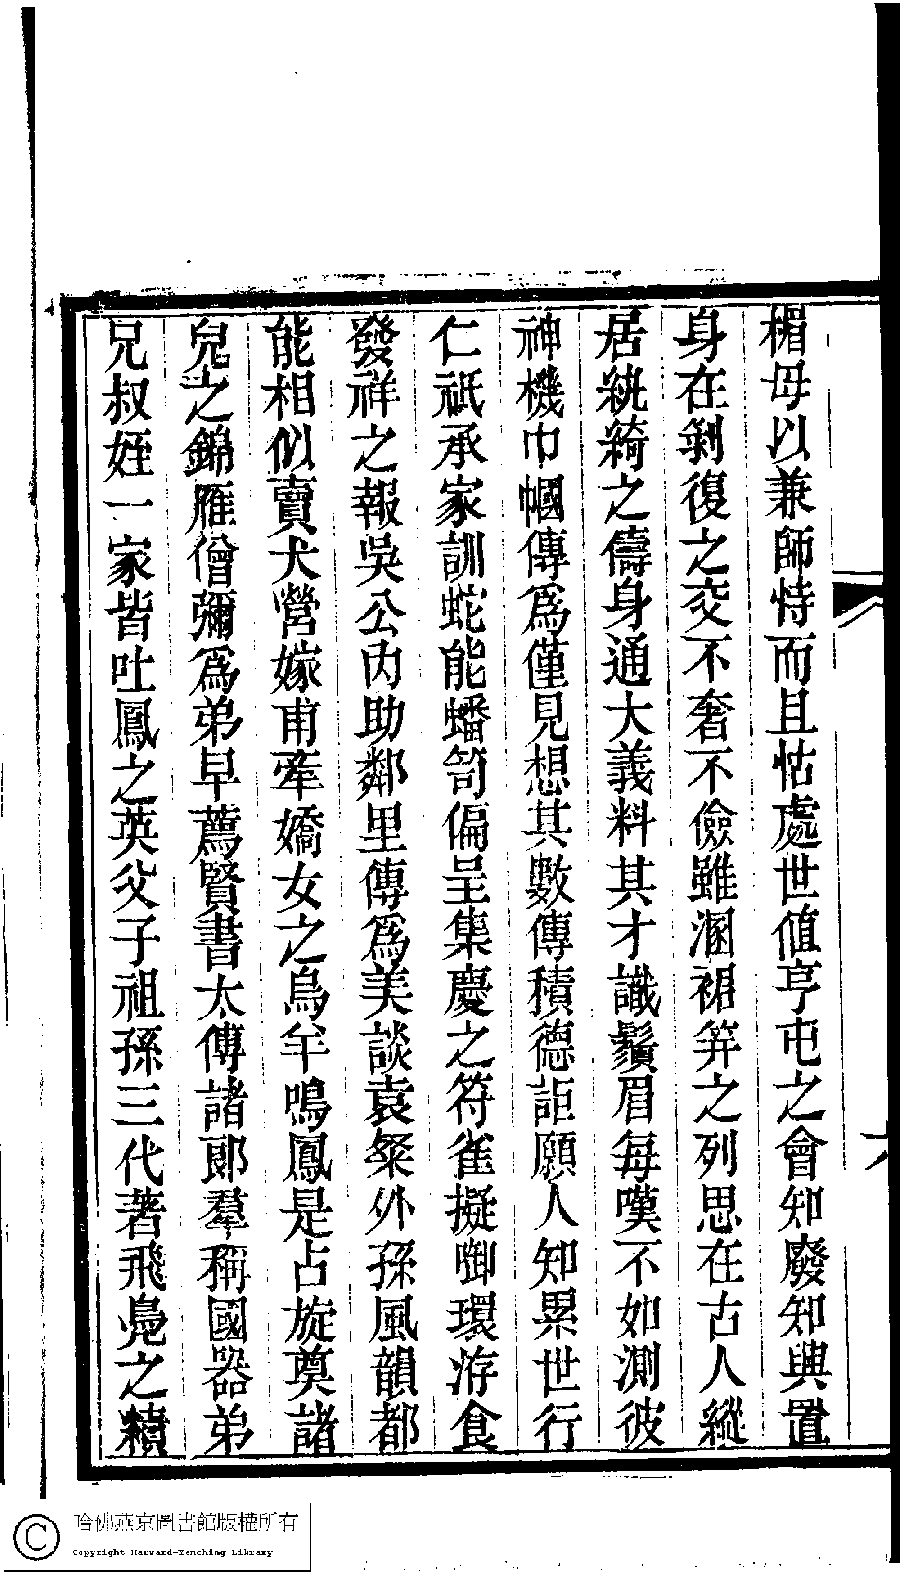 楣母以兼師恃而且怙處世値亨屯之會知廢知興置
身在剝復之交不奢不儉雖溷裙笄之列思在古人縱
居絖綺之儔身通大義料其才識鬚眉每嘆不如測彼
神機巾幗傳爲僅見想其數傳積德詎願人知累世行
仁祇承家訓蛇能蟠笥偏呈集慶之符雀擬啣環洊食
發祥之報吳公內助鄰里傳爲美談袁粲外孫風韻都
能相似賣犬營嫁甫牽嬌女之烏羊鳴鳳是占旋奠諸
兒之錦雁僧彌爲弟早薦賢書太傅諸郞羣稱國器弟
兄叔姪一家皆吐鳳之英父子祖孫三代著飛鳧之績
哈佛燕京圖書館版權所有
Copyright Harvard-Yenching Library